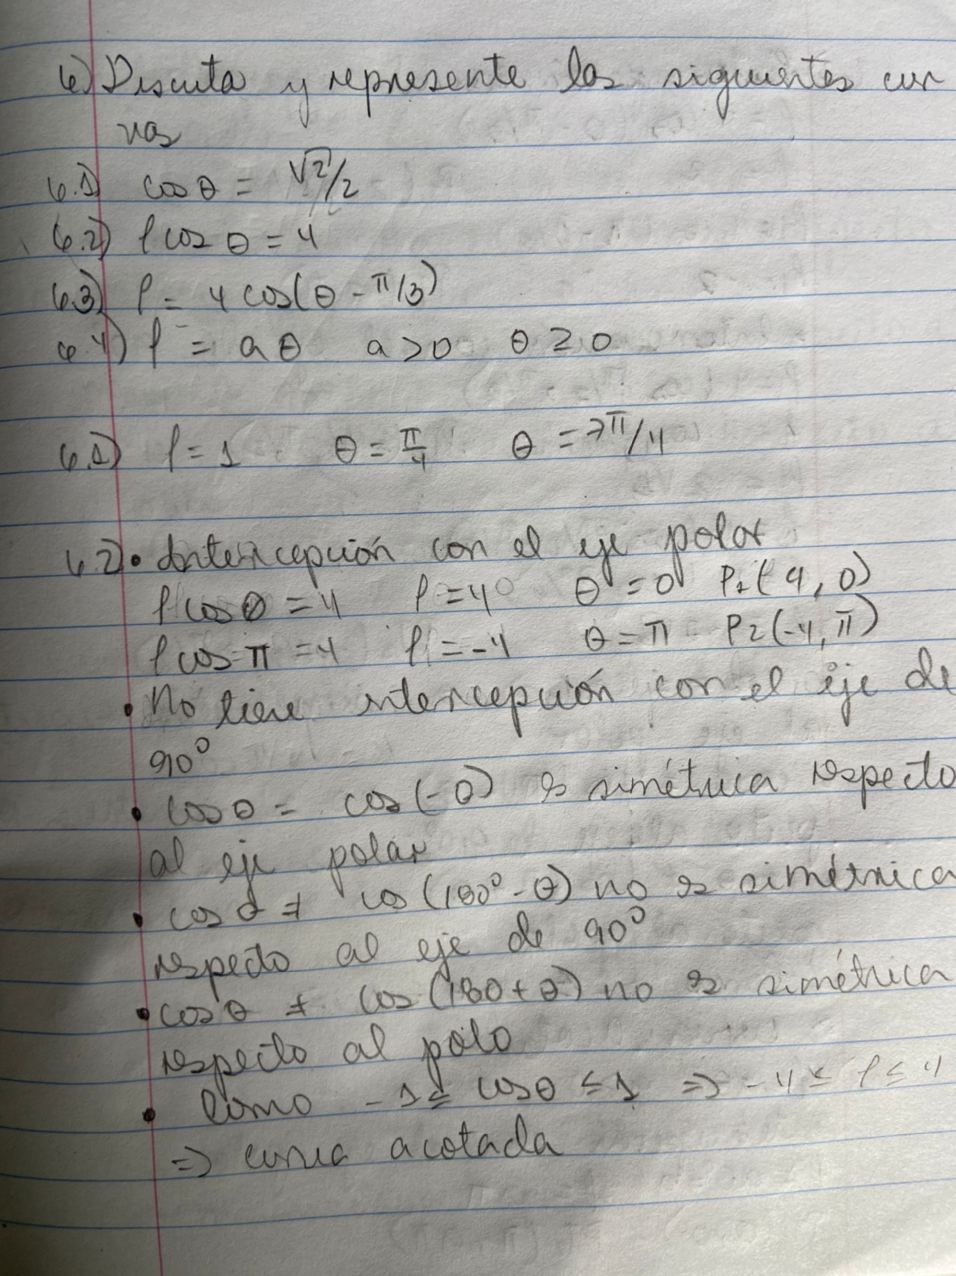 6) Discuta y represente las siguientes cur
vas
6.1) cos θ = √2/2
6.2) ρ cos θ = 4
6.3) ρ = 4 cos(θ - π/3)
6.4) ρ = a θ a > 0 θ ≥ 0
6.1) ρ = 1 θ = π/4 θ = 7π/4
6.2) • Intercepción con el eje polar
ρ cos θ = 4 ρ = 4 θ = 0 P1(4, 0)
ρ cos π = 4 ρ = -4 θ = π P2(-4, π)
• No tiene intercepción con el eje de
90°
• cos θ = cos(-θ) es simétrica respecto
al eje polar
• cos θ ≠ cos(180° - θ) no es simétrica
respecto al eje de 90°
• cos θ ≠ cos(180 + θ) no es simétrica
respecto al polo
• Como -1 ≤ cos θ ≤ 1 ⇒ -4 ≤ ρ ≤ 4
⇒ curva acotada